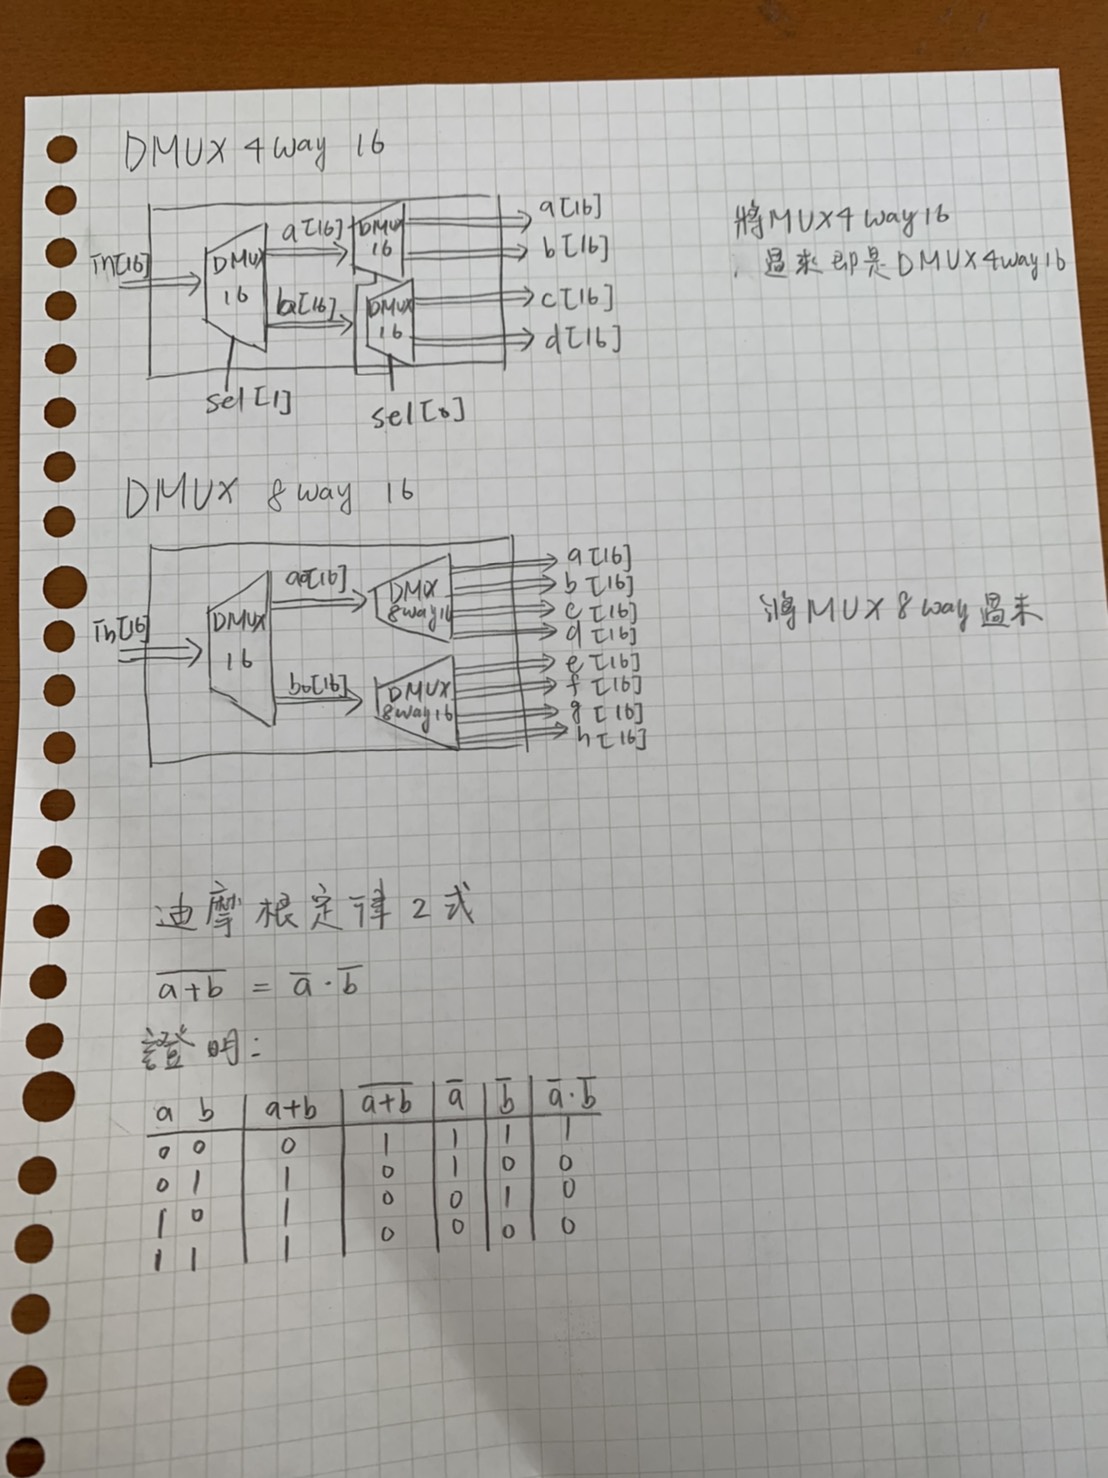 DMUX 4way 16
in[16]
DMUX
16
a[16]
ba[16]
DMUX
16
DMUX
16
a[16]
b[16]
c[16]
d[16]
sel[1]
sel[0]
將MUX4way16
過來即是DMUX4way16
DMUX 8way 16
in[16]
DMUX
16
DMUX
8way16
DMUX
8way16
a[16]
b[16]
c[16]
d[16]
e[16]
f[16]
g[16]
h[16]
將MUX 8way過來
迪摩根定律2式
a+b̅ = a̅·b̅
證明:
a b a+b a̅+̅b̅ a̅ b̅ a̅·b̅
0 0 0 1 1 1 1
0 1 1 0 1 0 0
1 0 1 0 0 1 0
1 1 1 0 0 0 0